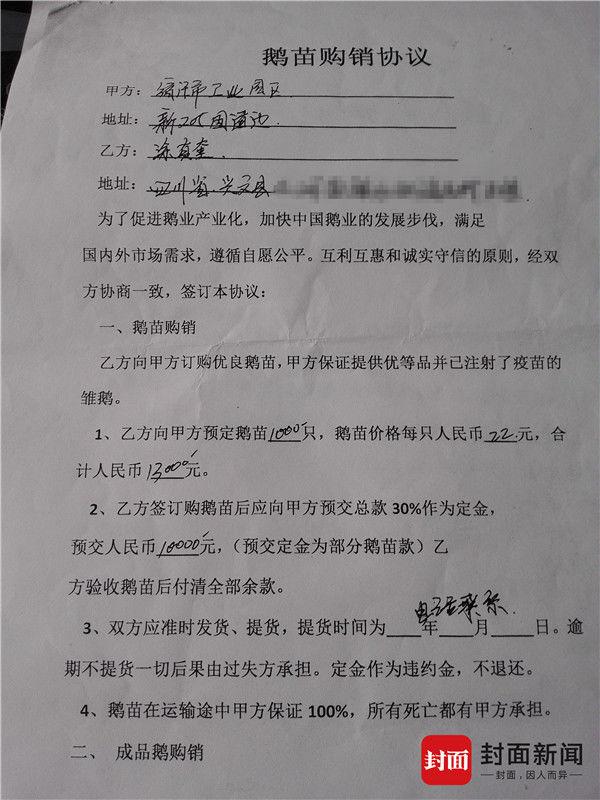 鹅苗购销协议
甲方：工业园区
地址：新
乙方：涂
地址：四川省，兴文县
为了促进鹅业产业化，加快中国鹅业的发展步伐，满足
国内外市场需求，遵循自愿公平。互利互惠和诚实守信的原则，经双
方协商一致，签订本协议：
一、鹅苗购销
乙方向甲方订购优良鹅苗，甲方保证提供优等品并已注射了疫苗的
雏鹅。
1、乙方向甲方预定鹅苗1000只，鹅苗价格每只人民币22.元，合
计人民币元。
2、乙方签订购鹅苗后应向甲方预交总款30%作为定金，
预交人民币10000元，（预交定金为部分鹅苗款）乙
方验收鹅苗后付清全部余款。
电话联系.
3、双方应准时发货、提货，提货时间为____年____月_____日。逾
期不提货一切后果由过失方承担。定金作为违约金，不退还。
4、鹅苗在运输途中甲方保证100%，所有死亡都有甲方承担。
二、 成品鹅购销
封面 封面新闻
封面，因人而异